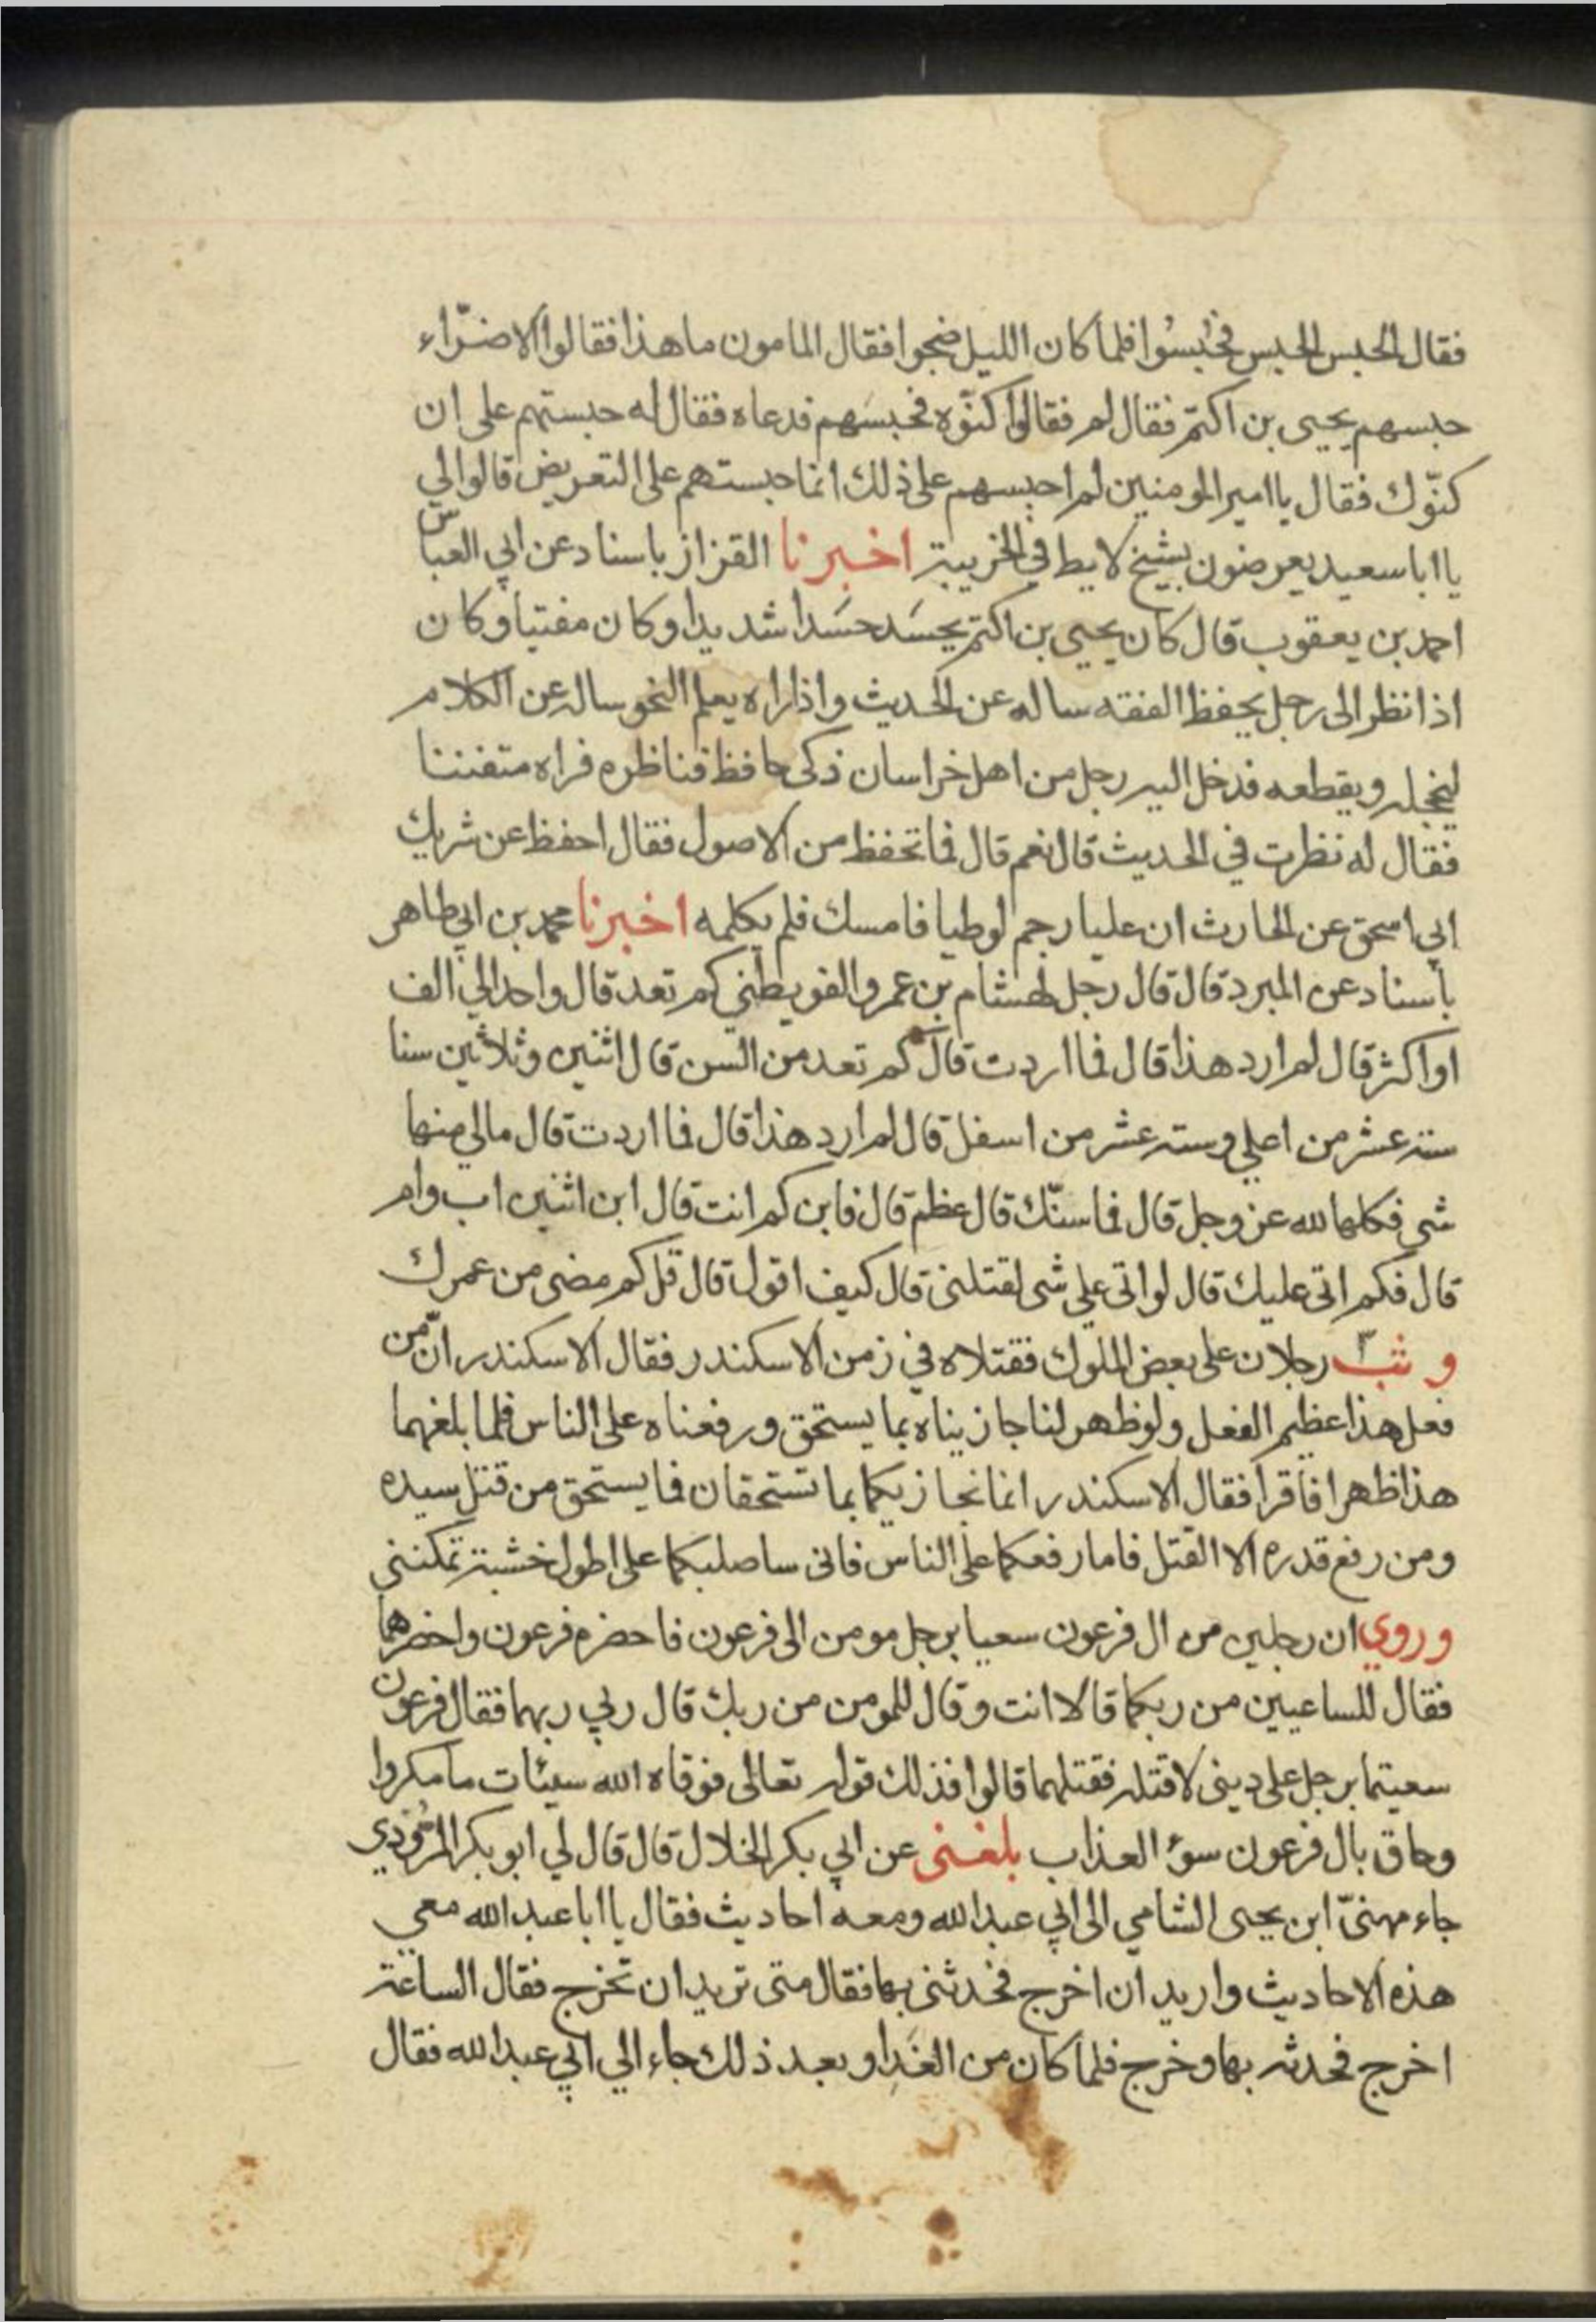 فقال الحبس الحبس فحُبسُوا فلما كان الليل ضجوا فقال المامون ما هذا فقالوا الاضرّاء
حبسهم يحيى بن اكتم فقال لم فقالوا كنّوه فحبسَهم فدعاه فقال له حبستهم على ان
كنّوك فقال يا امير المومنين لم احبسهم على ذلك انما حبستهم على التعريض قالوا لي
يا ابا سعيد يعرضون بشيخ لايط في الخريبة اخبرنا القزاز باسناد عن ابي العباس
احمد بن يعقوب قال كان يحيى بن اكتم يحسَد حسَدا شديدا وكان مفتيا وكان
اذا نظر الى رجل يحفظ الفقه ساله عن الحديث واذا راه يعلم النحو ساله عن الكلام
ليخجله ويقطعه فدخل اليه رجل من اهل خراسان ذكى حافظ فناظره فراه متفننا
فقال له نظرت في الحديث قال نعم قال فما تحفظ من الاصول فقال احفظ عن شريك
ابي اسحق عن الحارث ان عليا رجم لوطيا فامسك فلم يكلمه اخبرنا محمد بن ابي طاهر
باسناد عن المبرد قال قال رجل لهشام بن عمرو الفويطني كم تعد قال واحد الي الف
او اكثر قال لم ارد هذا قال فما اردت قال كم تعد من السن قال اثنين وثلاثين سنا
ستة عشر من اعلي وسته عشر من اسفل قال لم ارد هذا قال فما اردت قال مالي منها
شى فكلها لله عز وجل قال فما سنّك قال عظم قال فابن كم انت قال ابن اثنين اب وام
قال فكم اتى عليك قال لو اتى علي شى لقتلنى قال كيف اقول قال قل كم مضى من عمرك
وثب رجلان على بعض الملوك فقتلاه في زمن الاسكندر فقال الاسكندر انّ من
فعل هذا عظيم الفعل ولو ظهر لنا جازيناه بما يستحق ورفعناه على الناس فلما بلغهما
هذا ظهرا فاقرا فقال الاسكندر انما نجازيكما بما تستحقان فما يستحق من قتل سيده
ومن رفع قدره الا القتل فاما رفعكما على الناس فانى ساصلبكما على اطول خشبة تمكنني
وروي ان رجلين من ال فرعون سعيا برجل مومن الى فرعون فاحضره فرعون واحضرهما
فقال للساعيين من ربكما قالا انت وقال للمومن من ربك قال ربي ربهما فقال فرعون
سعيتما برجل على دينى لاقتله فقتلهما قالوا فذلك قوله تعالى فوقاه الله سيئات ما مكروا
وحاق بال فرعون سوء العذاب بلغنى عن ابي بكر الخلال قال قال لي ابو بكر المرُّوذي
جاء مهنىّ ابن يحيى الشامي الى ابي عبد الله ومعه احاديث فقال يا ابا عبد الله معي
هذه الاحاديث واريد ان اخرج فحدثنى بها فقال متى تريد ان تخرج فقال الساعة
اخرج فحدثه بها وخرج فلما كان من الغَدِ او بعد ذلك جاء الي ابي عبد الله فقال